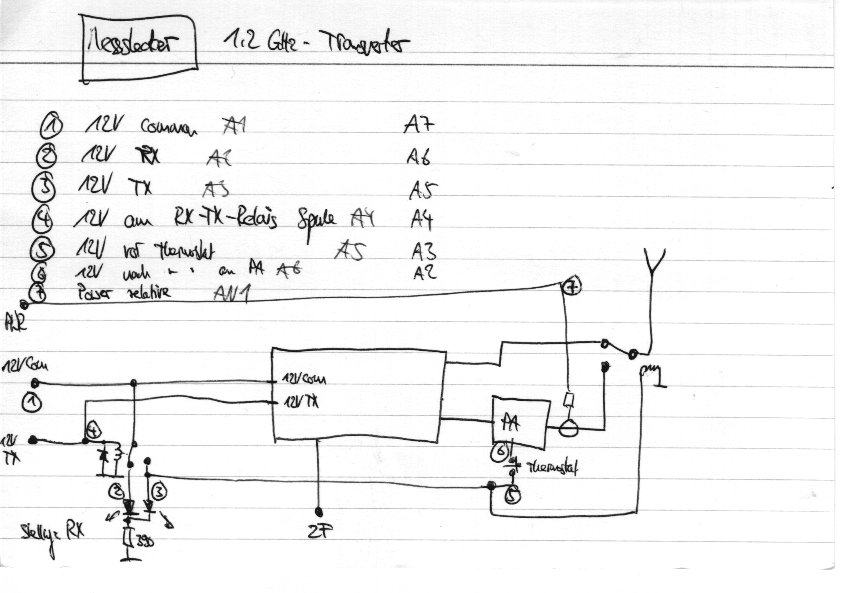 Messstecker 1.2 GHz - Transverter
① 12V common A1 A7
② 12V RX A2 A6
③ 12V TX A3 A5
④ 12V am RX-TX-Relais Spule A4 A4
⑤ 12V vor Thermostat A5 A3
⑥ 12V nach " " an PA A6 A2
⑦ Power relative AN1
PWR
⑦
12V Com
①
12VCom
12VTX
④
12V
TX
PA
⑥
Thermostat
⑤
②
③
390
RX
ZF